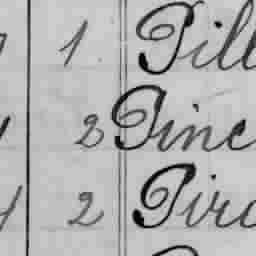 1 Pill
2 Pinc
2 Piro